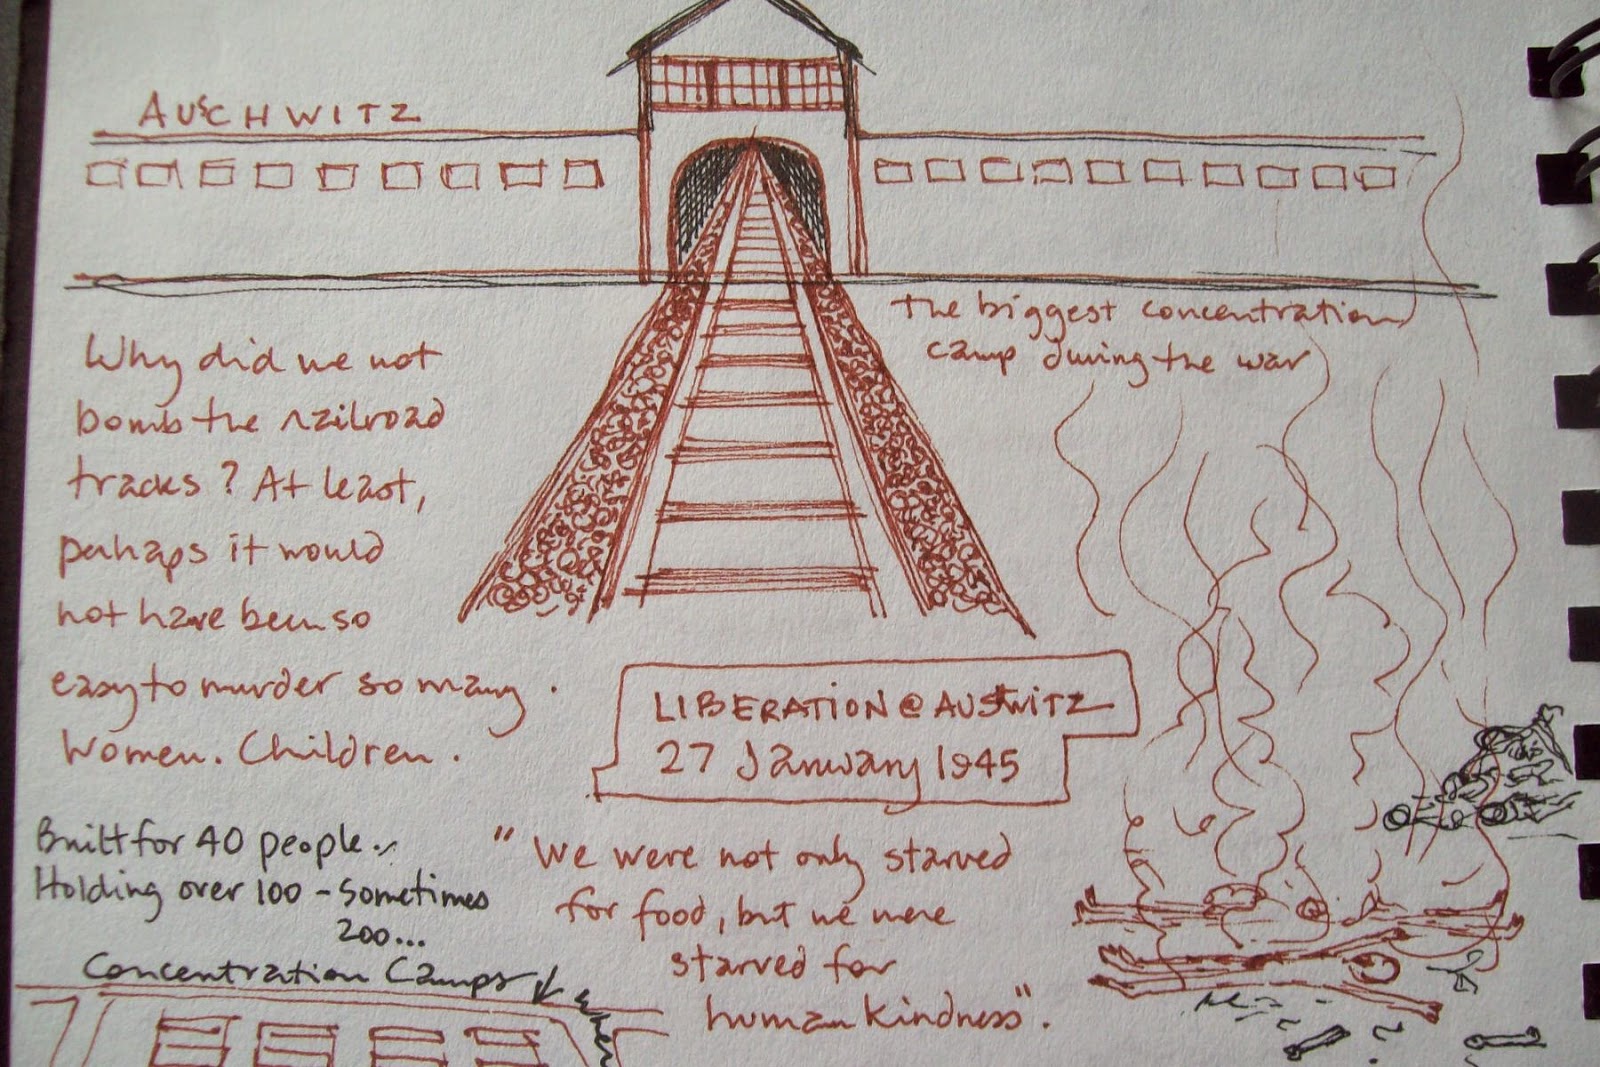 AUSCHWITZ
The biggest concentration
camp during the war
Why did we not
bomb the railroad
tracks? At least,
perhaps it would
not have been so
easy to murder so many.
Women. Children.
LIBERATION @ AUSTWITZ
27 January 1945
Built for 40 people..
Holding over 100 - sometimes
200...
Concentration Camps
"We were not only starved
for food, but we were
starved for
human kindness".